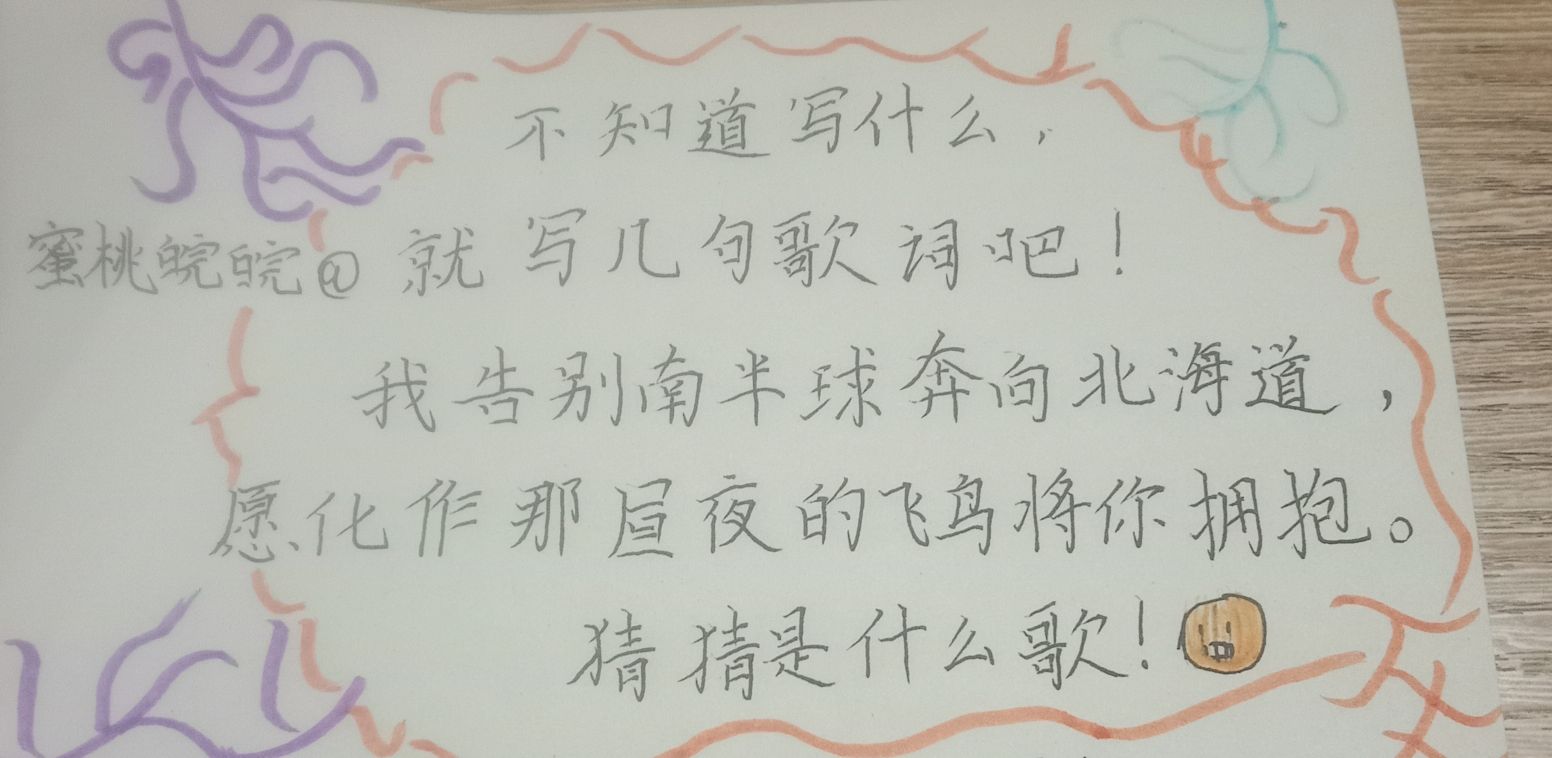 不知道写什么，
蜜桃皖皖@
就写几句歌词吧！
我告别南半球奔向北海道，
愿化作那昼夜的飞鸟将你拥抱。
猜猜是什么歌！